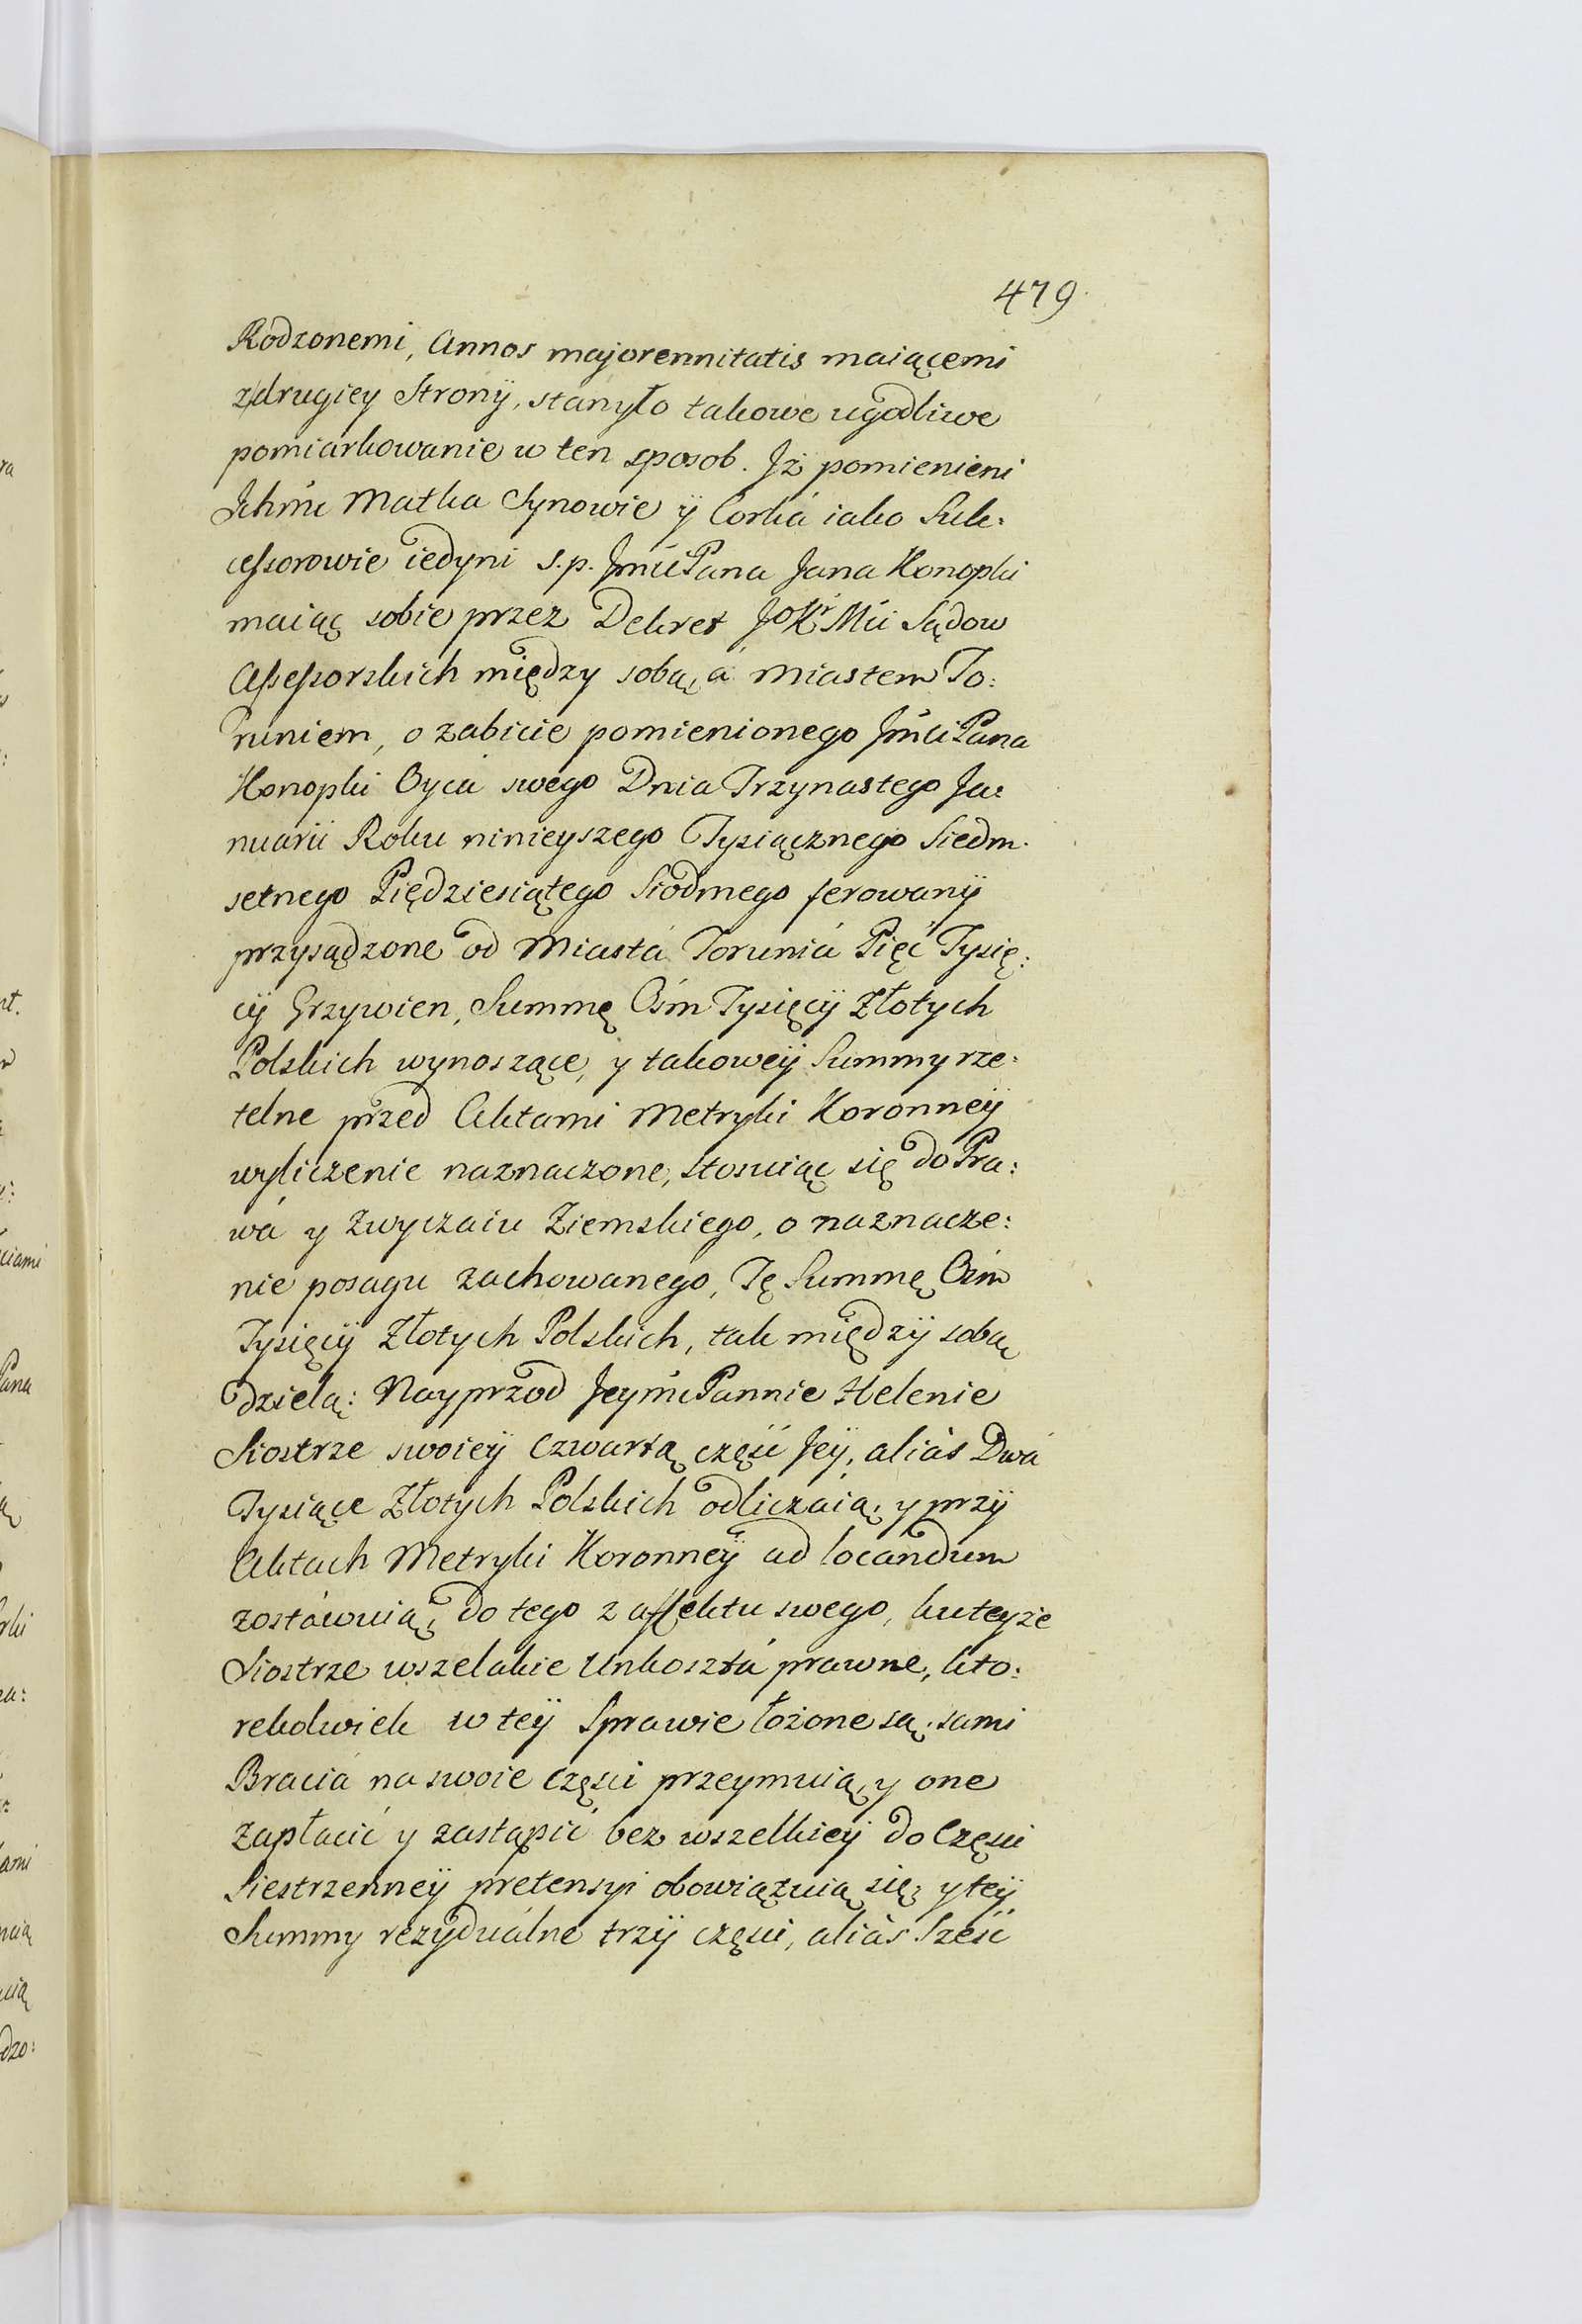 479
Rodzonemi, Annos majorennitatis maiącemi
z drugiey Strony, stanyło takowe ugodliwe
pomiarkowanie w ten sposob. Jż pomienieni
Jchmć Matka Synowie y Corká iako Suk:
cessorowie iedyni s.p. Jmći Pana Jana Konopki
maiąc sobie przez Dekret JoKr Mći Sądow
Assessorskich między sobą, á Miastem To:
runiem, o zabicie pomienionego Jmći Pana
Konopki Oyca swego Dnia Trzynastego Ja:
nuarii Roku ninieyszego Tysiącznego Siedm.
setnego Piędziesiątego Siodmego ferowany
przysądzone od Miastá Toruniá Pięć Tysię:
cy Grzywien, Summę Ośm Tysięcy Złotych
Polskich wynoszące, y takowey Summy rze:
telne przed Aktami Metryki Koronney
wyliczenie naznaczone, stosuiąc się do Pra:
wá y zwyczaiu Ziemskiego, o naznacze:
nie posagu zachowanego, Tę Summę Ośm
Tysięcy Złotych Polskich, tak między sobą
dzielą: Nayprzod Jeymć Pannie Helenie
Siostrze swoiey Czwartą część Jey, aliàs Dwá
Tysiące Złotych Polskich odliczaią, y przy
Aktach Metryki Koronney ad locandum
zostáwuią, do tego z affektu swego, ku teyże
Siostrze wszelakie Unkosztá prawne, kto:
rekolwiek w tey Sprawie łożone są, sami
Braciá na swoie Części przeymuią, y one
zapłacić y zastąpić bez wszelkiey do Części
Siestrzenney pretensyi obowiązuią się, y tey
Summy rezyduálne trzy części, aliàs Sześć